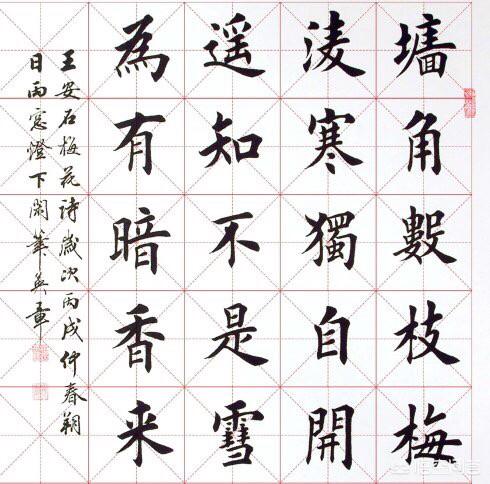 墻角數枝梅
淩寒獨自開
遥知不是雪
為有暗香来
王安石梅花詩歲次丙戌仲春朔
日雨窓燈下閑筆英章